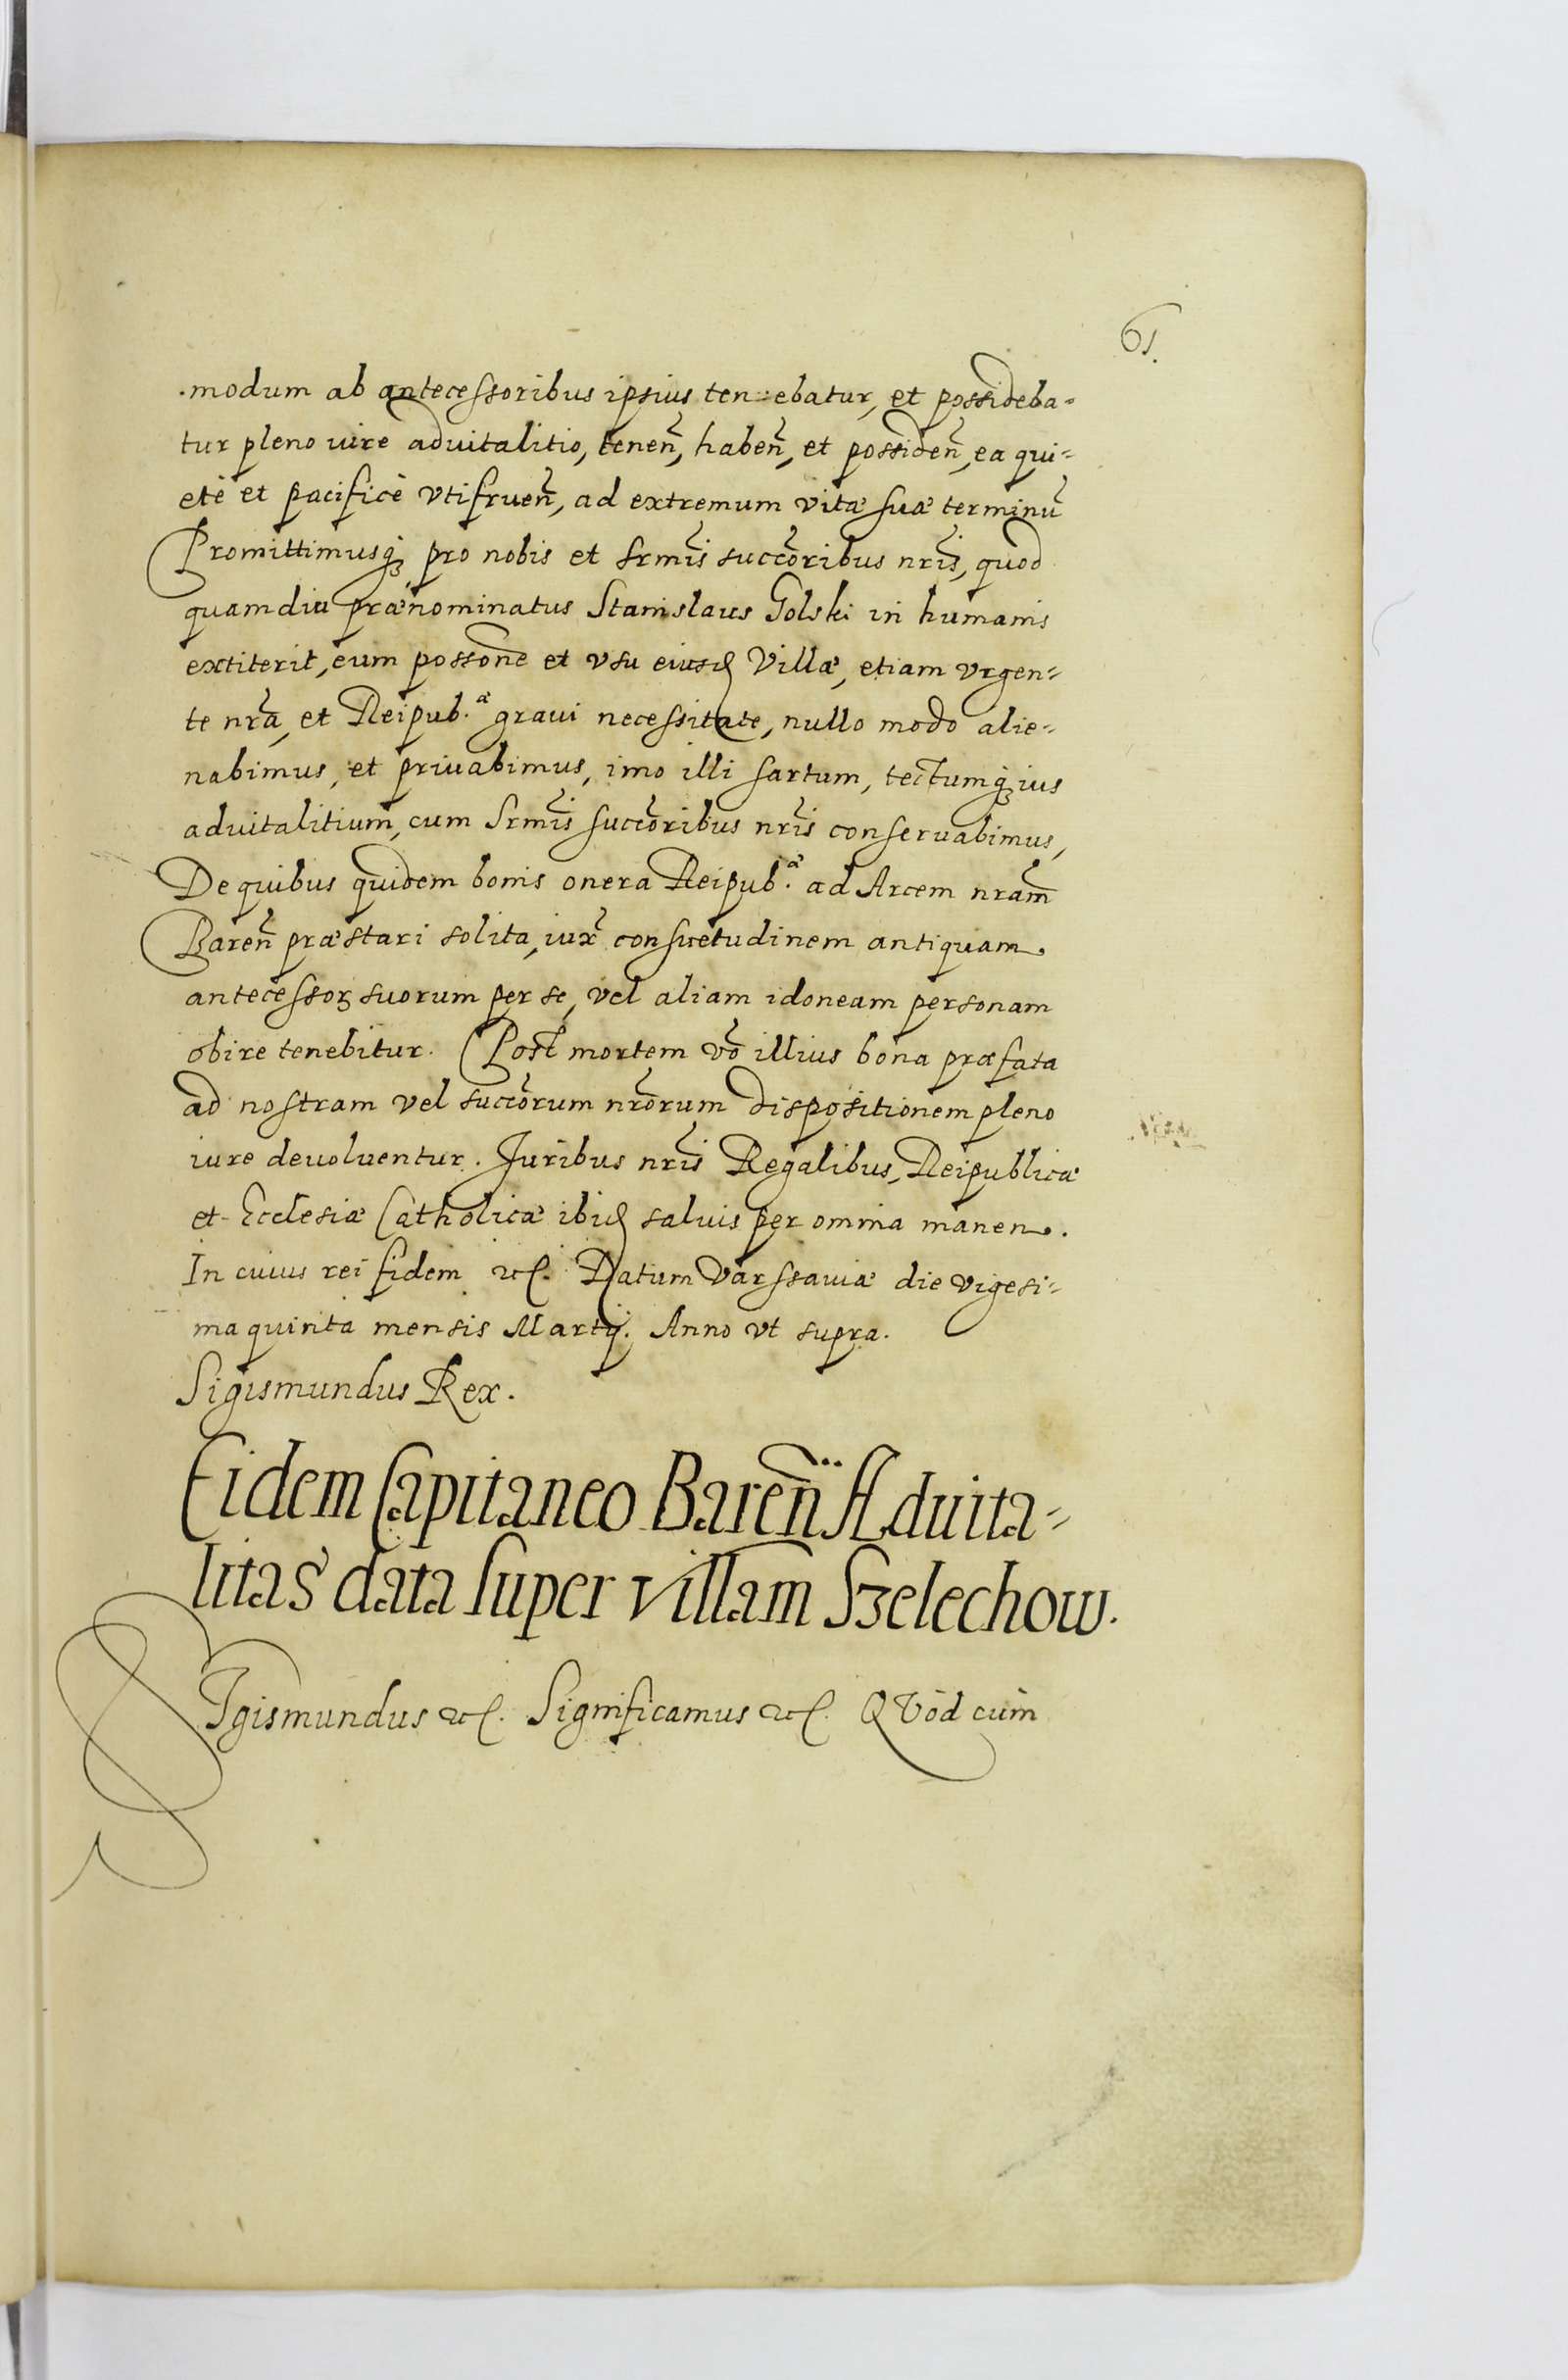 61.
modum ab antecessoribus ipsius ten=ebatur, et possideba=
tur pleno iure aduitalitio, tenen̄, haben̄, et possiden̄, ea qui=
etè et pacificè vtifruen̄, ad extremum vitæ suæ terminū
Promittimusq́ꝫ pro nobis et Srmīs succ̄oribus nrīs, quod
quamdiu prænominatus Stanislaus Golski in humanis
extiterit, eum possōne et vsu eiusd̄ Villæ, etiam vrgen=
te nrā, et Reipub.æ graui necessitate, nullo modo alie=
nabimus, et priuabimus, imo illi sartum, tectumq́ꝫ ius
aduitalitium, cum Srmīs succ̄oribus nrīs conseruabimus,
De quibus quidem bonis onera Reipub.æ ad Arcem nrām
Baren̄ præstari solita, iux̄ consuetudinem antiquam
antecessoꝝ suorum per se, vel aliam idoneam personam
obire tenebitur. Post mortem vō illius bona præfata
ad nostram vel succ̄orum nrōrum dispositionem pleno
iure deuoluentur. Juribus nrīs Regalibus, Reipublicæ
et Ecclesiæ Catholicæ ibid̄ saluis per omnia manen.
In cuius rei fidem etc. Datum Varssauiæ die vigesi=
ma quinta mensis Martij. Anno vt supra.
Sigismundus Rex.
Eidem Capitaneo Baren̄ Aduita=
litas data super villam Szelechow.
SIgismundus etc. Significamus etc. QVod cùm